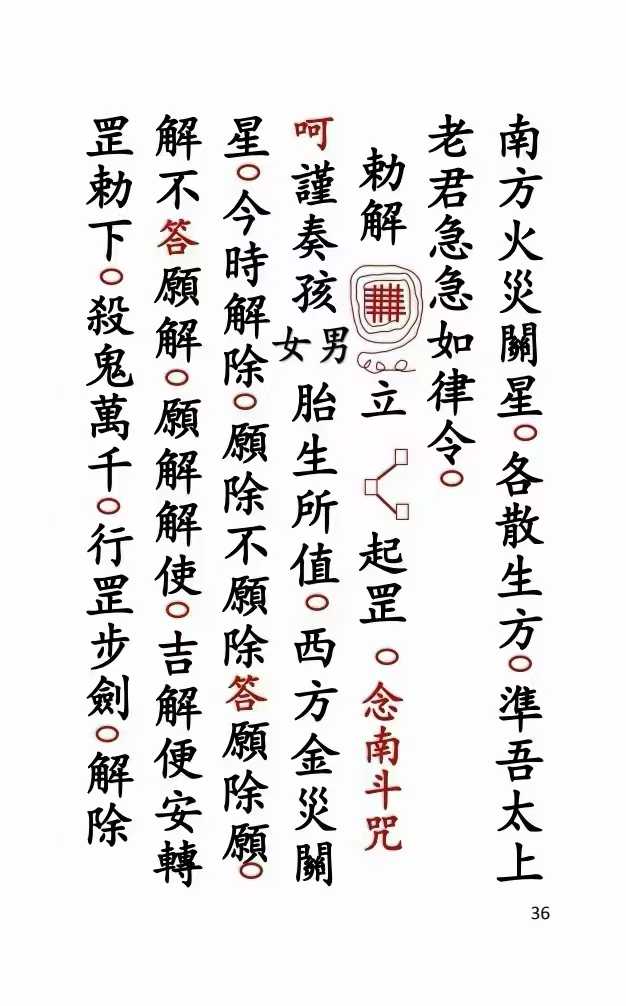 南方火災關星。各散生方。準吾太上
老君急急如律令。
勅解立起罡。念南斗咒
呵謹奏孩男女胎生所值。西方金災關
星。今時解除。願除不願除答願除願。
解不答願解。願解解使。吉解便安轉
罡勅下。殺鬼萬千。行罡步劍。解除
36